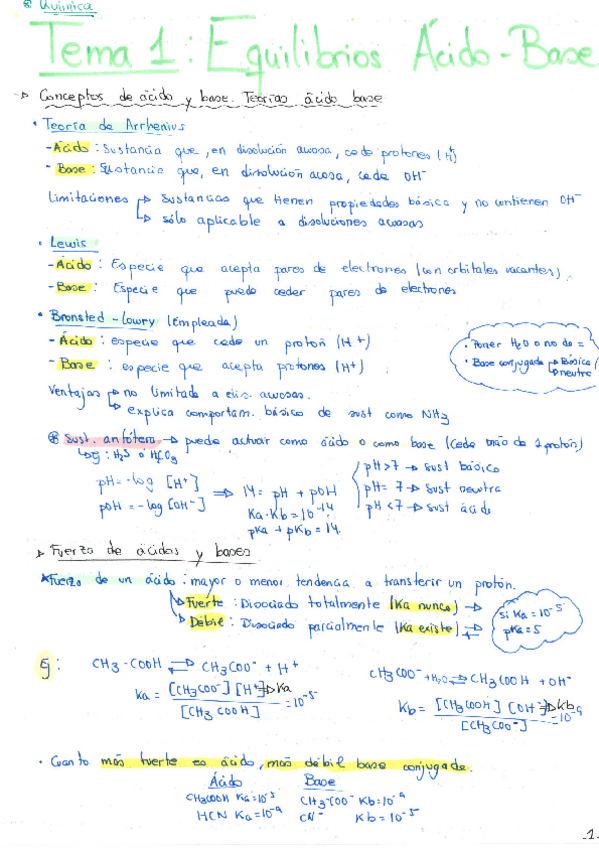 Química
Tema 1: Equilibrios Ácido-Base
Conceptos de ácido y base. Teorías ácido base
• Teoría de Arrhenius
- Ácido: Sustancia que, en disolución acuosa, cede protones (H⁺)
- Base: Sustancia que, en disolución acosa, cede OH⁻
Limitaciones → Sustancias que tienen propiedades básica y no contienen OH⁻
→ sólo aplicable a disoluciones acuosas
• Lewis
- Ácido: Especie que acepta pares de electrones (con orbitales vacantes).
- Base: Especie que puede ceder pares de electrones
• Bronsted-Lowry (Empleada)
- Ácido: especie que cede un protón (H⁺)
- Base: especie que acepta protones (H⁺)
• Poner H₂O o no da =
• Base conjugada → Básica/
→ neutra
Ventajas → no limitada a dis. acuosas.
→ explica comportam. básico de sust como NH₃
⊛ Sust. anfótera → puede actuar como ácido o como base (Cede más de 1 protón)
→ Ej: H₂S ó HCO₃
pH = -log [H⁺]
pOH = -log [OH⁻]
⇒ 14 = pH + pOH
Ka·Kb = 10⁻¹⁴
pKa + pKb = 14
pH>7 → sust básico
pH= 7 → sust neutra
pH<7 → sust ácida
Fuerza de ácidos y bases
*Fuerza de un ácido: mayor o menor tendencia a transferir un protón.
→ Fuerte: Disociado totalmente (Ka nunca) →
→ Débil: Disociado parcialmente (Ka existe) ⇌
Si Ka = 10⁻⁵
pKa = 5
Ej:
CH₃-COOH ⇌ CH₃COO⁻ + H⁺
Ka = [CH₃COO⁻] [H⁺] → Ka / [CH₃COOH] = 10⁻⁵
CH₃COO⁻ + H₂O ⇌ CH₃COOH + OH⁻
Kb = [CH₃COOH] [OH⁻] → Kb / [CH₃COO⁻] = 10⁻⁹
• Cuanto más fuerte es ácido, más débil base conjugada.
Ácido Base
CH₃COOH Ka=10⁻⁵ CH₃-COO⁻ Kb=10⁻⁹
HCN Ka=10⁻⁹ CN⁻ Kb=10⁻⁵
-1-